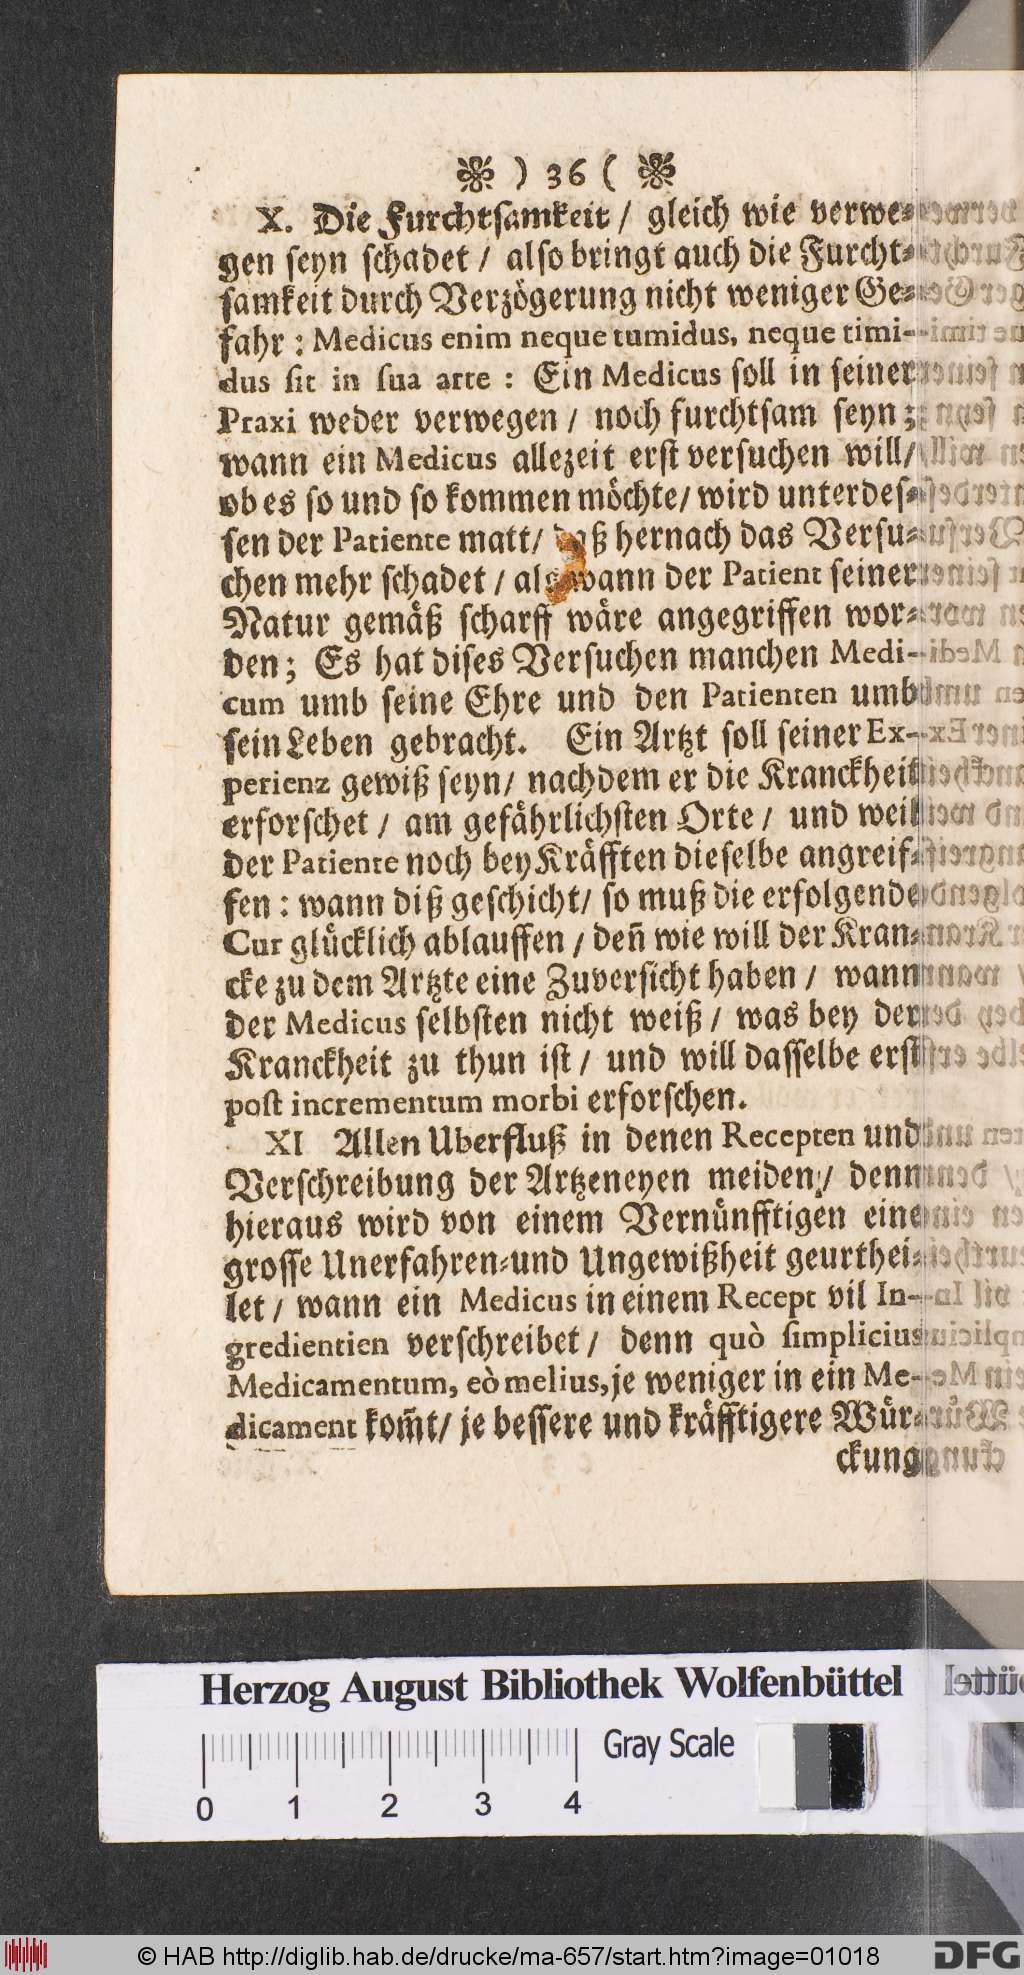 ) 36 (
X. Die Furchtsamkeit / gleich wie verwe-
gen seyn schadet / also bringt auch die Furcht-
samkeit durch Verzögerung nicht weniger Ge-
fahr : Medicus enim neque tumidus, neque timi-
dus sit in sua arte : Ein Medicus soll in seiner
Praxi weder verwegen / noch furchtsam seyn;
wann ein Medicus allezeit erst versuchen will /
ob es so und so kommen möchte / wird unterdes-
sen der Patiente matt / daß hernach das Versu-
chen mehr schadet / als wann der Patient seiner
Natur gemäß scharff wäre angegriffen wor-
den; Es hat dises Versuchen manchen Medi-
cum umb seine Ehre und den Patienten umb
sein Leben gebracht. Ein Artzt soll seiner Ex-
perienz gewiß seyn / nachdem er die Kranckheit
erforschet / am gefährlichsten Orte / und weil
der Patiente noch bey Kräfften dieselbe angreif-
fen : wann diß geschicht / so muß die erfolgende
Cur glücklich ablauffen / deñ wie will der Kran-
cke zu dem Artzte eine Zuversicht haben / wann
der Medicus selbsten nicht weiß / was bey der
Kranckheit zu thun ist / und will dasselbe erst
post incrementum morbi erforschen.
XI Allen Uberfluß in denen Recepten und
Verschreibung der Artzeneyen meiden; / denn
hieraus wird von einem Vernünfftigen eine
grosse Unerfahren-und Ungewißheit geurthei-
let / wann ein Medicus in einem Recept vil In-
gredientien verschreibet / denn quò simplicius
Medicamentum, eò melius, je weniger in ein Me-
dicament kom̃t / je bessere und kräfftigere Wür-
ckung
Herzog August Bibliothek Wolfenbüttel
Gray Scale
0 1 2 3 4
© HAB http://diglib.hab.de/drucke/ma-657/start.htm?image=01018
DFG